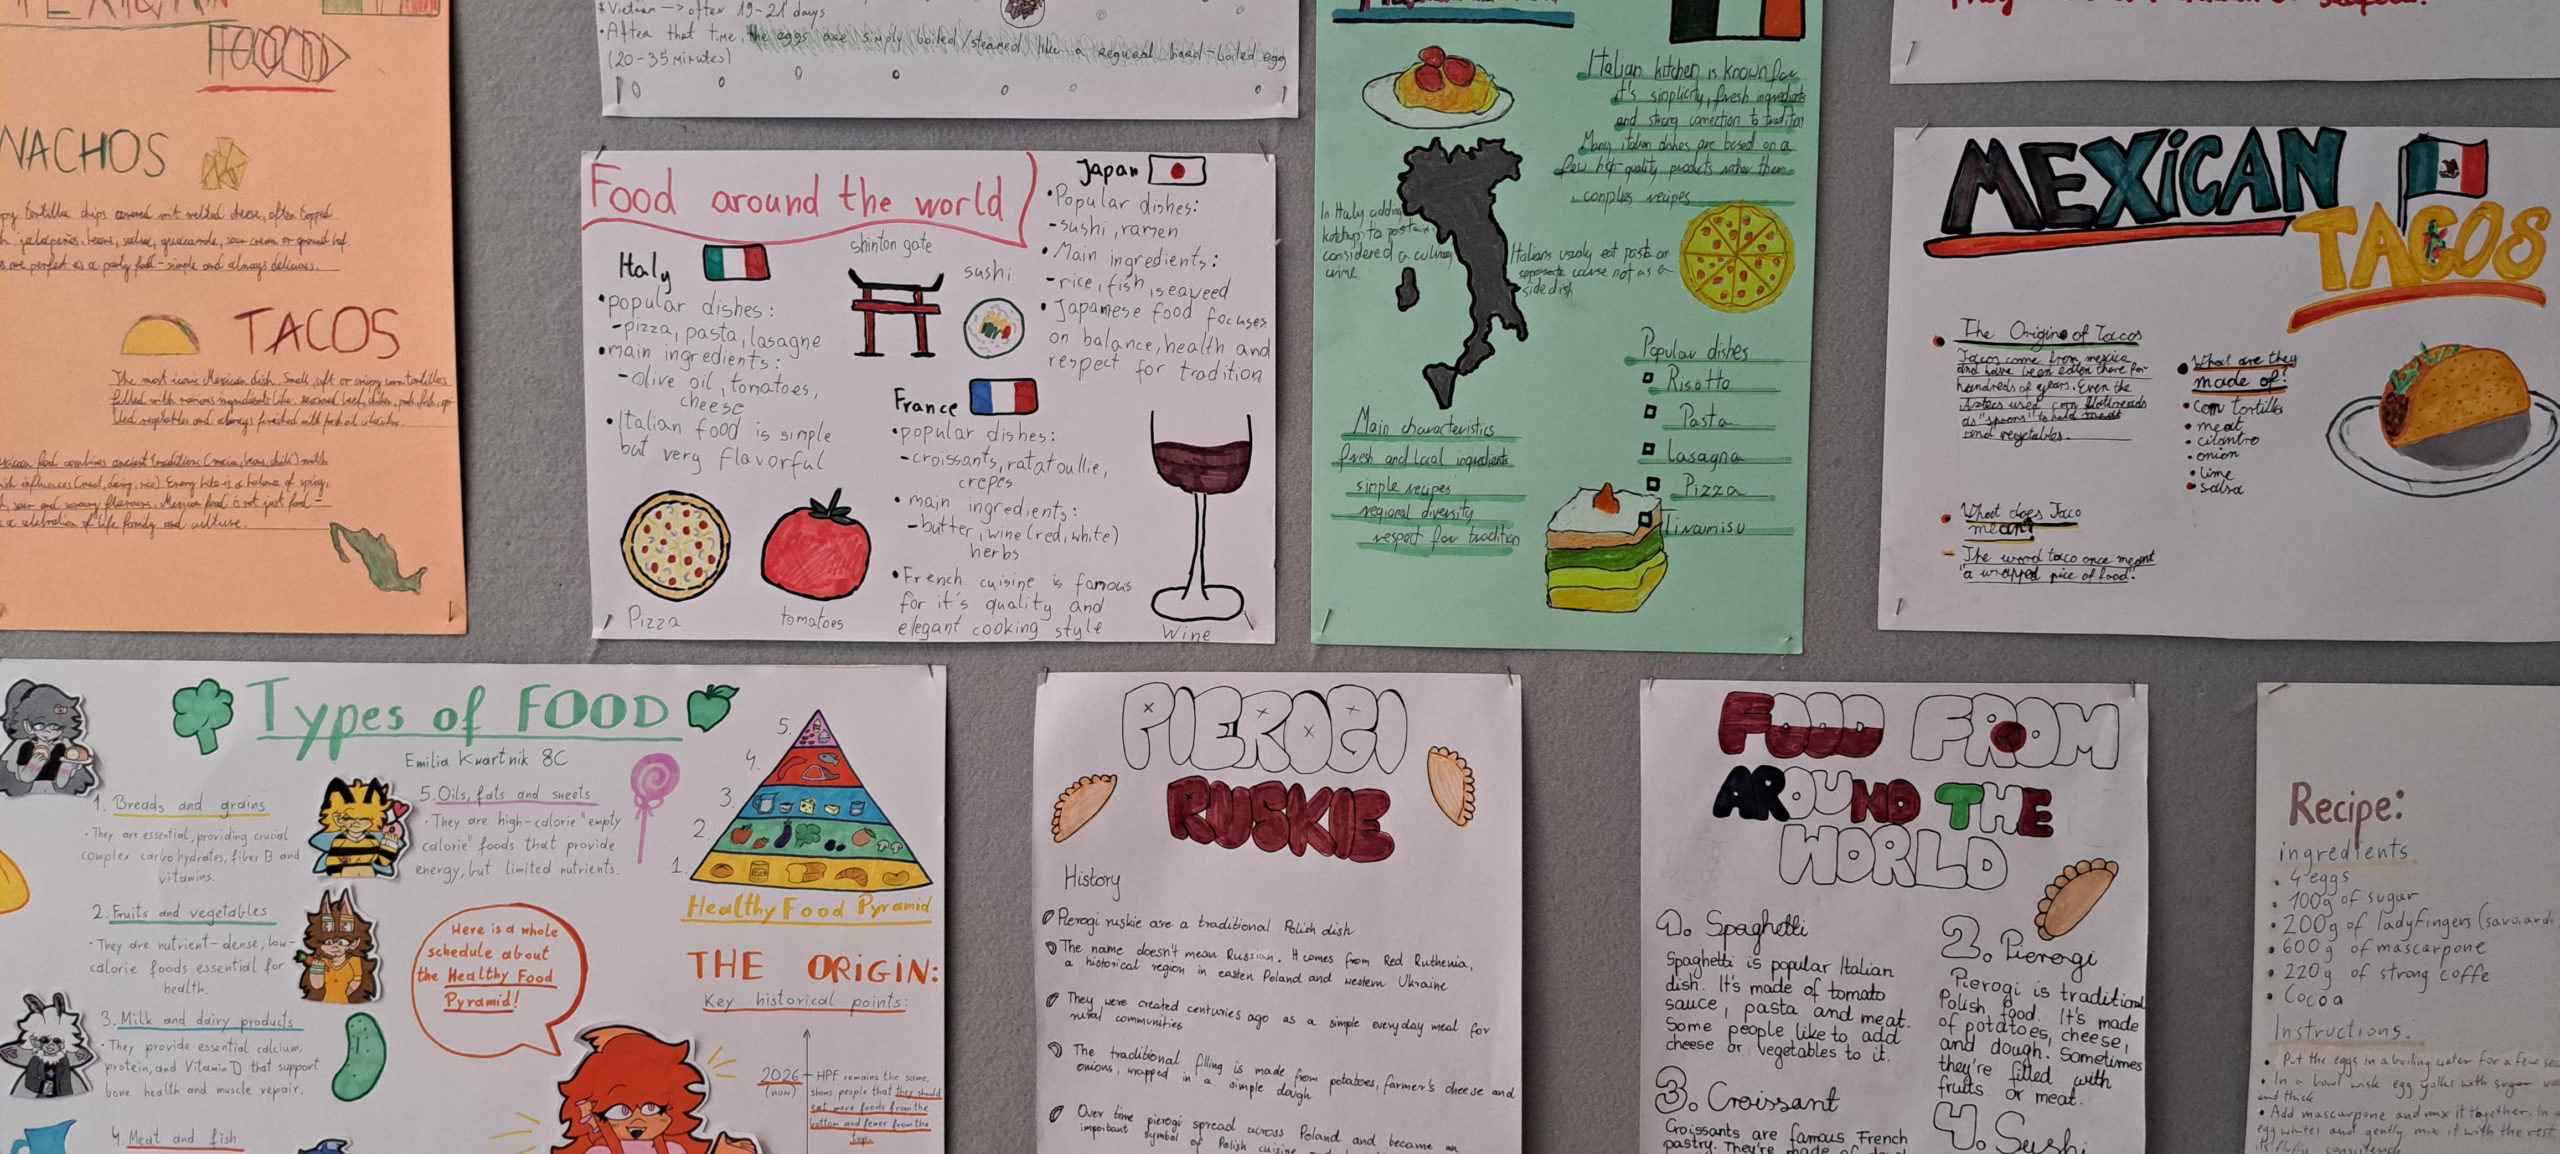 MEXICAN
FOOD
NACHOS
tortilla chips covered wit melted cheese, often topped
jalapeños, beans, salsa, guacamole, sour cream or ground beef.
are perfect as a party food - simple and always delicious.
TACOS
The most iconic Mexican dish. Small, soft or crispy corn tortillas
filled with various ingredients like: seasoned beef, chicken, pork, fish,
food combines ancient tradition (maize, beans, chili) with
influences (meat, dairy, rice). Every bite is a balance of spicy,
sour and savoury flavours. Mexican food is not just food -
a celebration of life family and culture.
*Vietnam -> often 19-21 days
• After that time, the eggs are simply boiled/steamed like a regular hard-boiled egg
(20-35 minutes)
Food around the world
Italy
• popular dishes:
- pizza, pasta, lasagne
• main ingredients:
- olive oil, tomatoes,
cheese
• Italian food is simple
but very flavorful
Pizza
tomatoes
shinton gate
sushi
Japan
• Popular dishes:
- sushi, ramen
• Main ingredients:
- rice, fish, seaweed
• Japanese food focuses
on balance, health and
respect for tradition
France
• popular dishes:
- croissants, ratatoullie,
crepes
• main ingredients:
- butter, wine (red, white)
herbs
• French cuisine is famous
for it's quality and
elegant cooking style
Wine
Italian kitchen is known for
it's simplicity, fresh ingredients
and strong connection to tradition
Many italian dishes are based on a
few high-quality products rather them
complex recipes
In Italy adding
ketchup to pasta is
considered a culinary
crime
Italians usualy eat pasta as
separate course not as a
side dish
Main characteristics
fresh and local ingredients
simple recipes
regional diversity
respect for tradition
Popular dishes
Risotto
Pasta
Lasagna
Pizza
Tiramisu
MEXiCAN
TACOS
• The Origins of Tacos
Tacos come from mexico
and have been eaten there for
hundreds of years. Even the
Aztecs used corn flatbreads
as "spoons" to hold meat
and vegetables.
• What does Taco
mean?
- The word taco once meant
"a wrapped pice of food".
• What are they
made of?
• corn tortillas
• meat
• cilantro
• onion
• lime
• salsa
Types of FOOD
Emilia Kwartnik 8C
1. Breads and grains
• They are essential, providing crucial
complex carbohydrates, fiber B and
vitamins.
2. Fruits and vegetables
• They are nutrient-dense, low-
calorie foods essential for
health.
3. Milk and dairy products
• They provide essential calcium,
protein, and Vitamin D that support
bone health and muscle repair.
4. Meat and fish
5. Oils, fats and sweets
• They are high-calorie "empty
calorie" foods that provide
energy, but limited nutrients.
Here is a whole
schedule about
the Healthy Food
Pyramid!
5.
4.
3.
2.
1.
Healthy Food Pyramid
THE ORiGiN:
Key historical points:
2026
(now)
HPF remains the same,
shows people that they should
eat more foods from the
bottom and fewer from the
top.
PIEROGI
RUSKIE
History
Pierogi ruskie are a traditional Polish dish
The name doesn't mean Russian. It comes from Red Ruthenia,
a historical region in eastern Poland and western Ukraine
They were created centuries ago as a simple everyday meal for
rural communities
The traditional filling is made from potatoes, farmer's cheese and
onions, wrapped in a simple dough
Over time pierogi spread across Poland and became an
important symbol of Polish cuisine
FOOD FROM
AROUND THE
WORLD
1. Spaghetti
Spaghetti is popular Italian
dish. It's made of tomato
sauce, pasta and meat.
Some people like to add
cheese or vegetables to it.
3. Croissant
Croissants are famous French
pastry. They're made of
2. Pierogi
Pierogi is traditional
Polish food. It's made
of potatoes, cheese,
and dough. Sometimes
they're filled with
fruits or meat.
4. Sushi
Recipe:
ingredients
• 4 eggs
• 100g of sugar
• 200g of ladyfingers (savoiardi
• 600g of mascarpone
• 220g of strong coffe
• Cocoa
Instructions:
• Put the eggs in a boiling water for a few
• In a bowl wisk egg yolks with sugar
and thick
• Add mascarpone and mix it together. In
egg whites and gently mix it with the rest